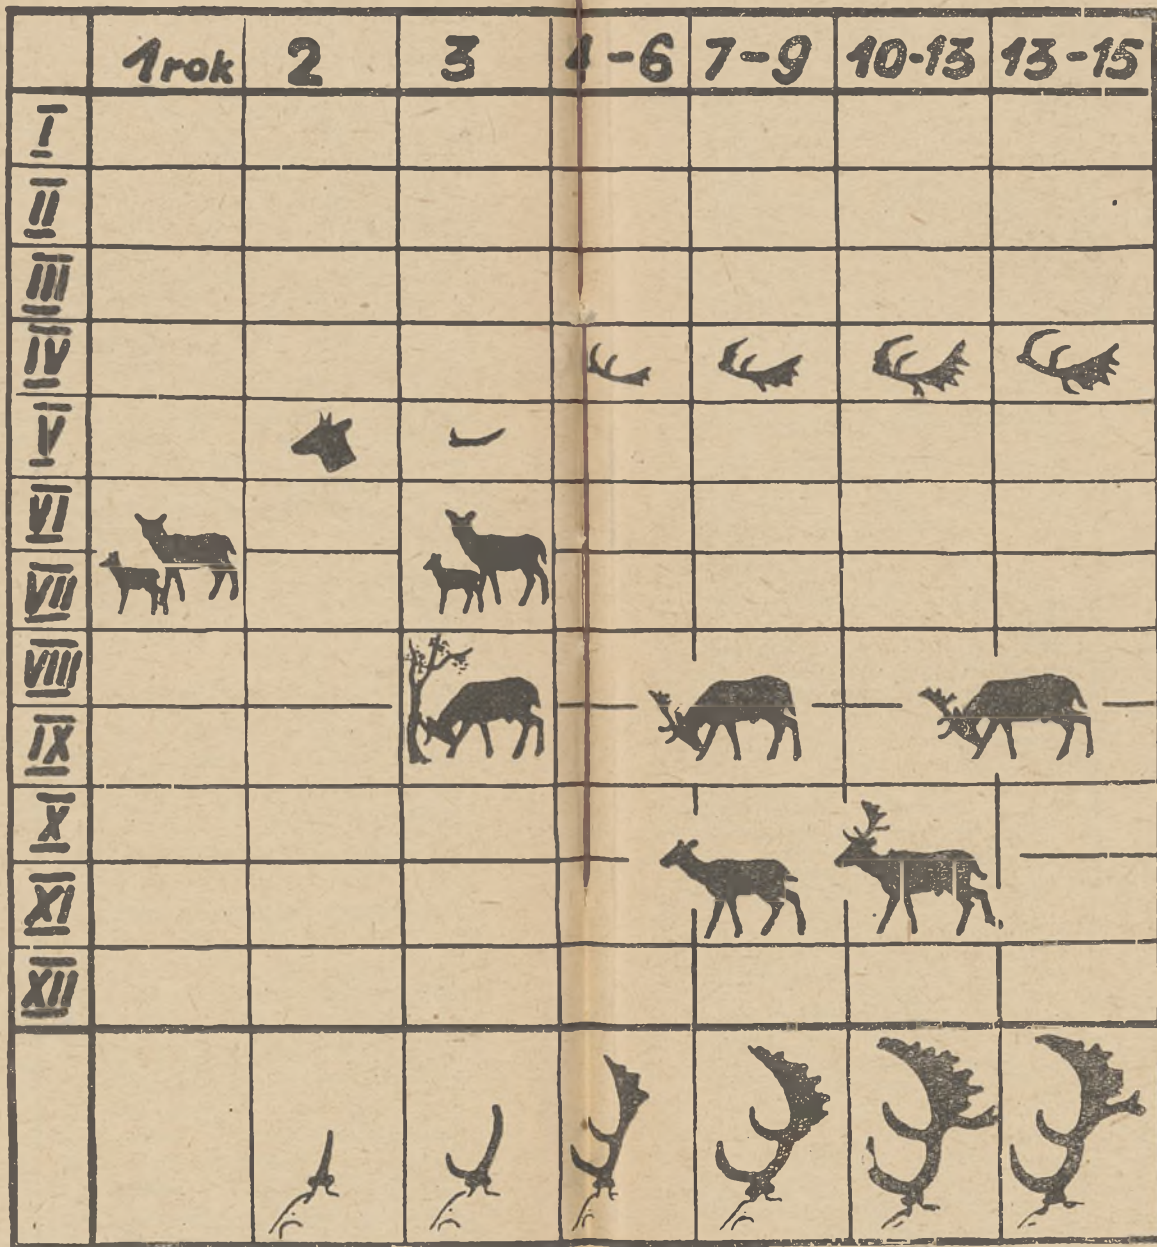 1 rok 2 3 4-6 7-9 10-13 13-15
I
II
III
IV
V
VI
VII
VIII
IX
X
XI
XII